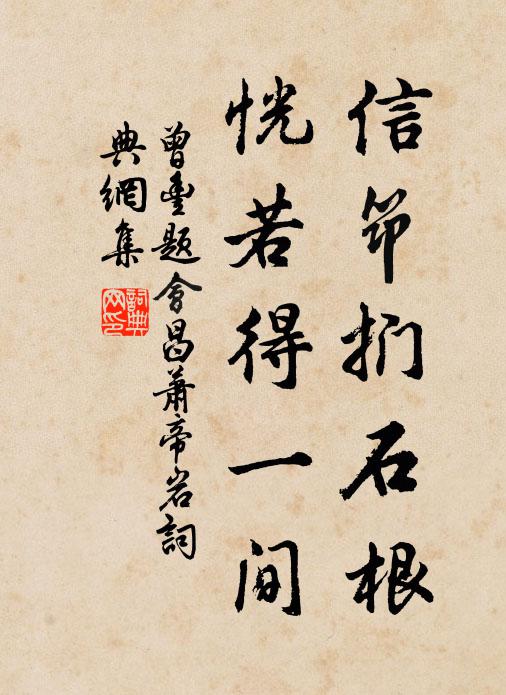 信笻捫石根
恍若得一間
曾豐題會昌蕭帝岩詞
典網集
詞典
网印